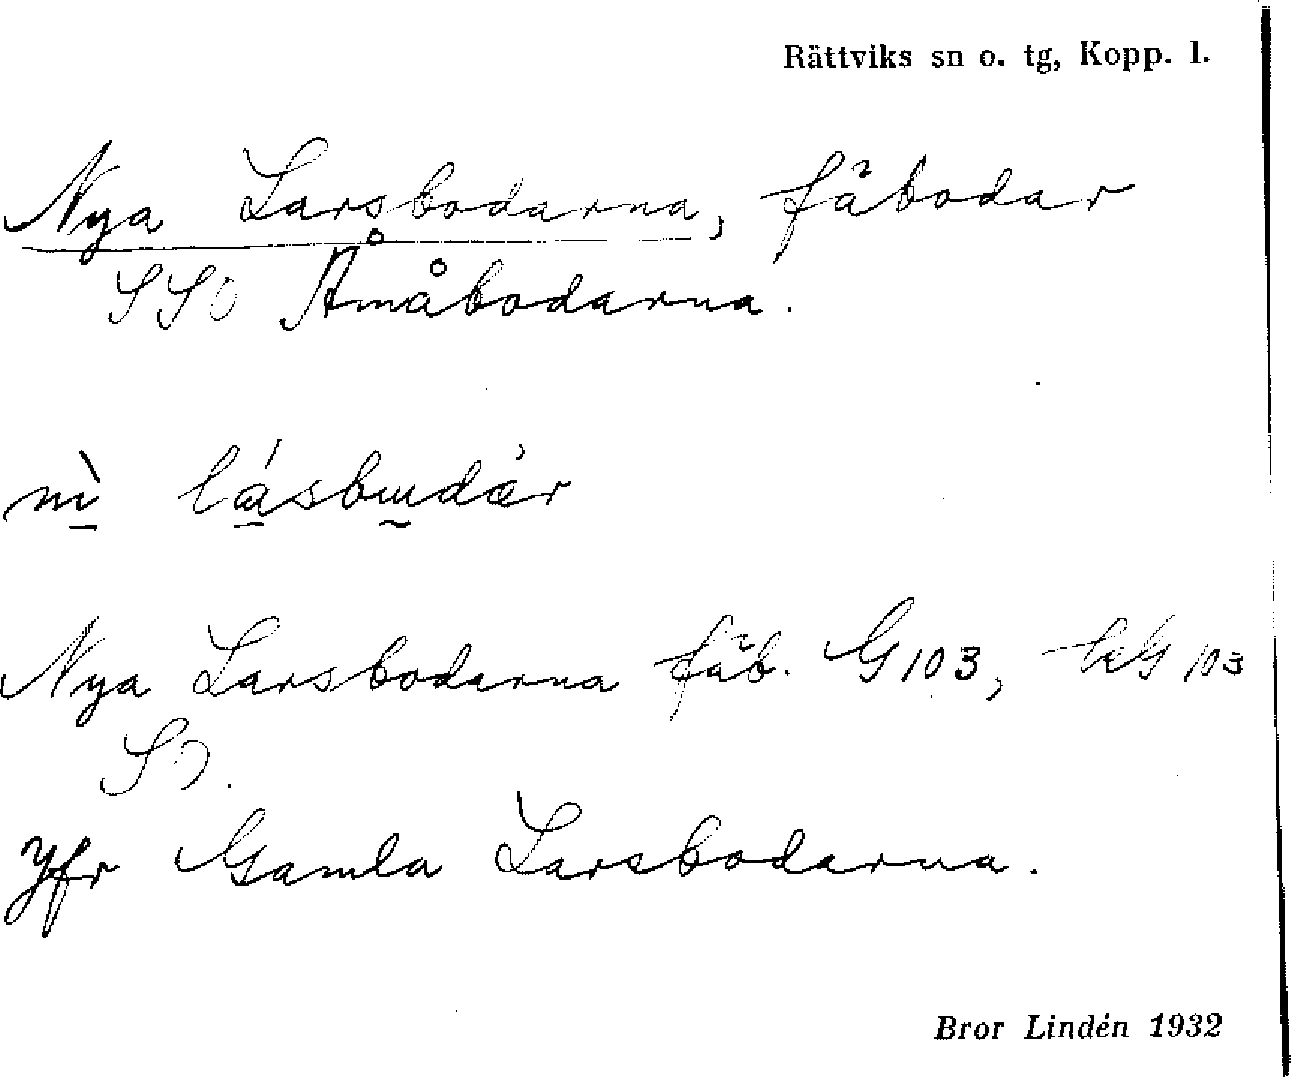 Rättviks sn o. tg, Kopp. l.
Nya Larsbodarna, fäbodar
SSO Åmåbodarna.
Nya Larsbodarna fäb. G103, G103
SO.
Jfr Gamla Larsbodarna.
Bror Lindén 1932